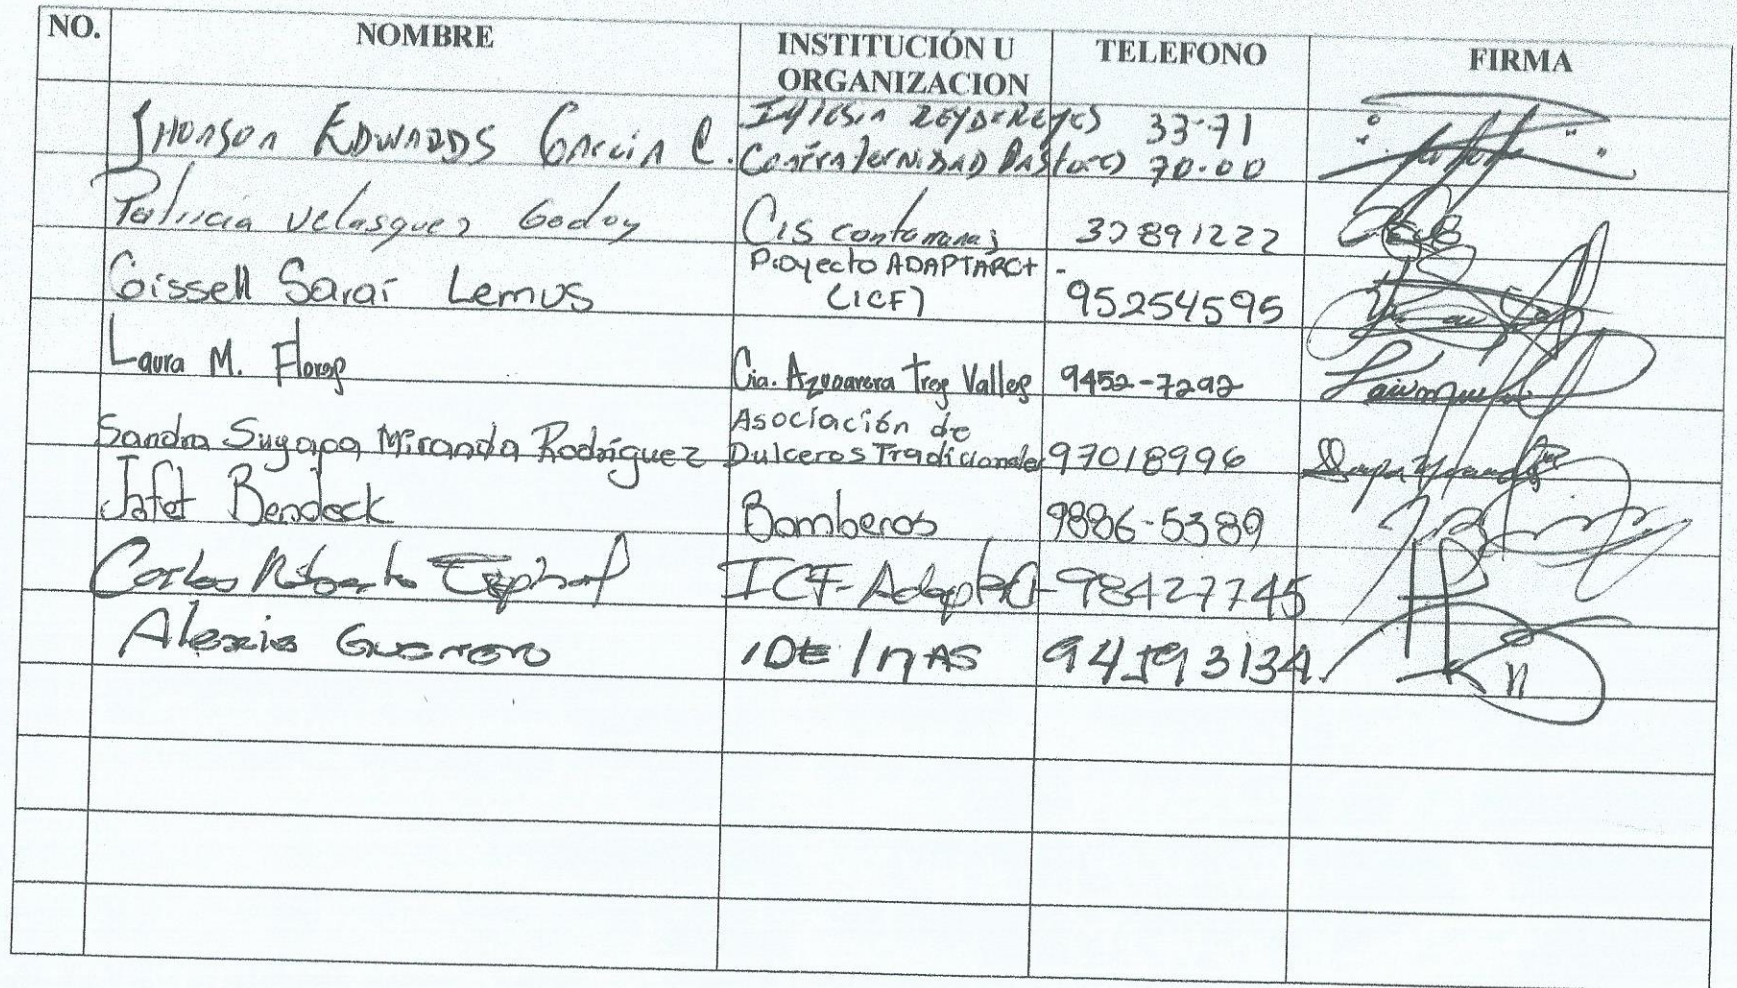 NO. NOMBRE INSTITUCIÓN U ORGANIZACION TELEFONO FIRMA
Jhonson EDWARDS García C. Iglesia REY DE REyes 33-71
Confraternidad Pastores 70-00
Patricia Velasquez Godoy Cis contamanas 32891222
Gissell Saraí Lemus Proyecto ADAPTARC+ - 95254595
(ICF)
Laura M. Flores Cia. Azucarera Tres Valles 9452-7292
Sandra Suyapa Miranda Rodríguez Asociación de
Dulceros Tradicionales 97018996
Jafet Bendeck Bomberos 9886-5389
Carlos Roberto ICF-Adapta 98427745
Alexis Guerrero 94593134